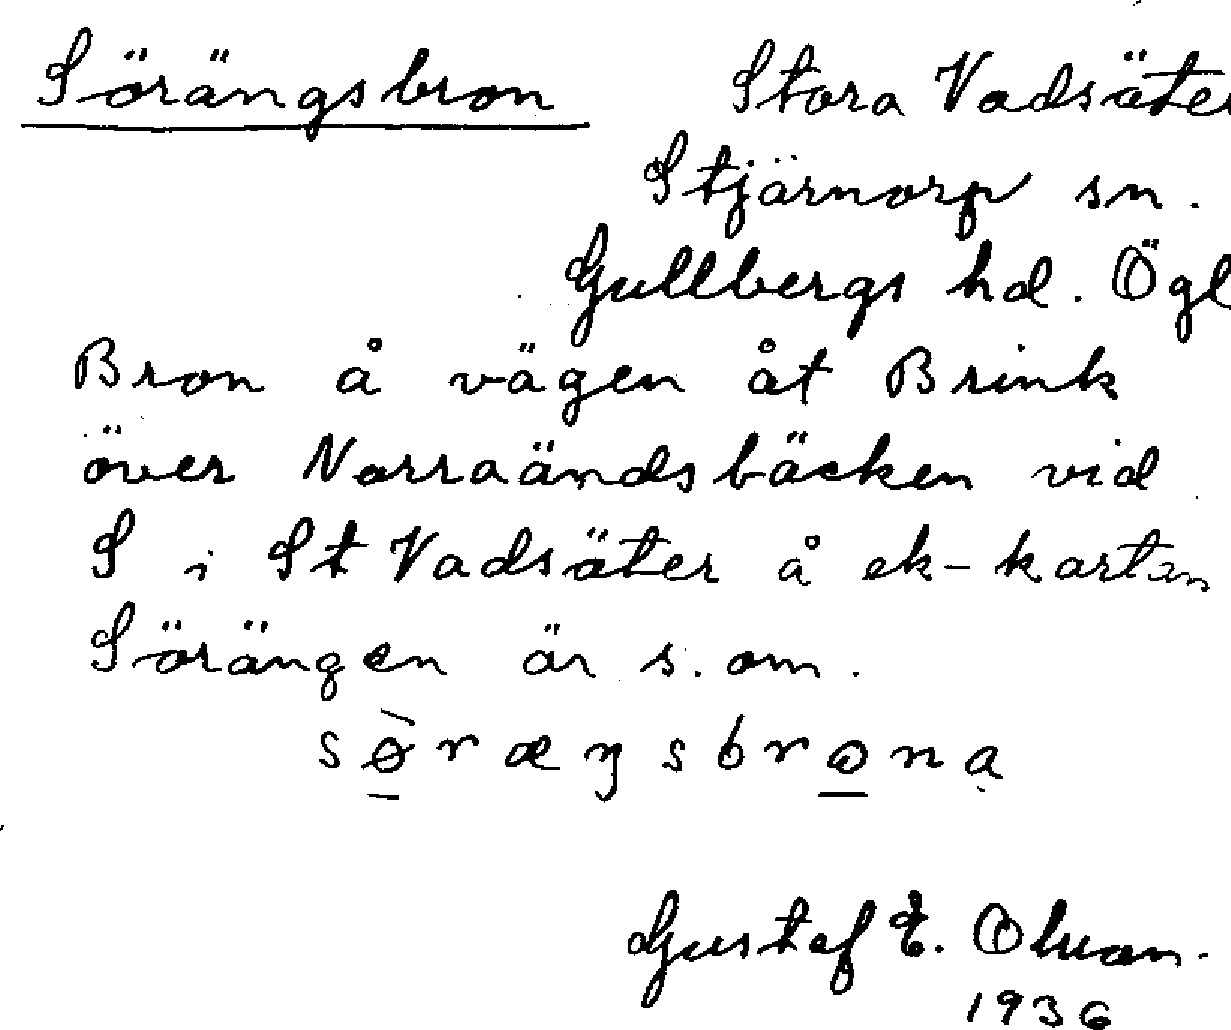 Sörängsbron Stora Vadsäter
Stjärnorp sn.
Gullbergs hd. Ögl
Bron å vägen åt Brink
över Norraändsbäcken vid
S i St Vadsäter å ek-kartan
Sörängen är s. om.
sø̀ræŋsbrona
Gustaf E.
1936